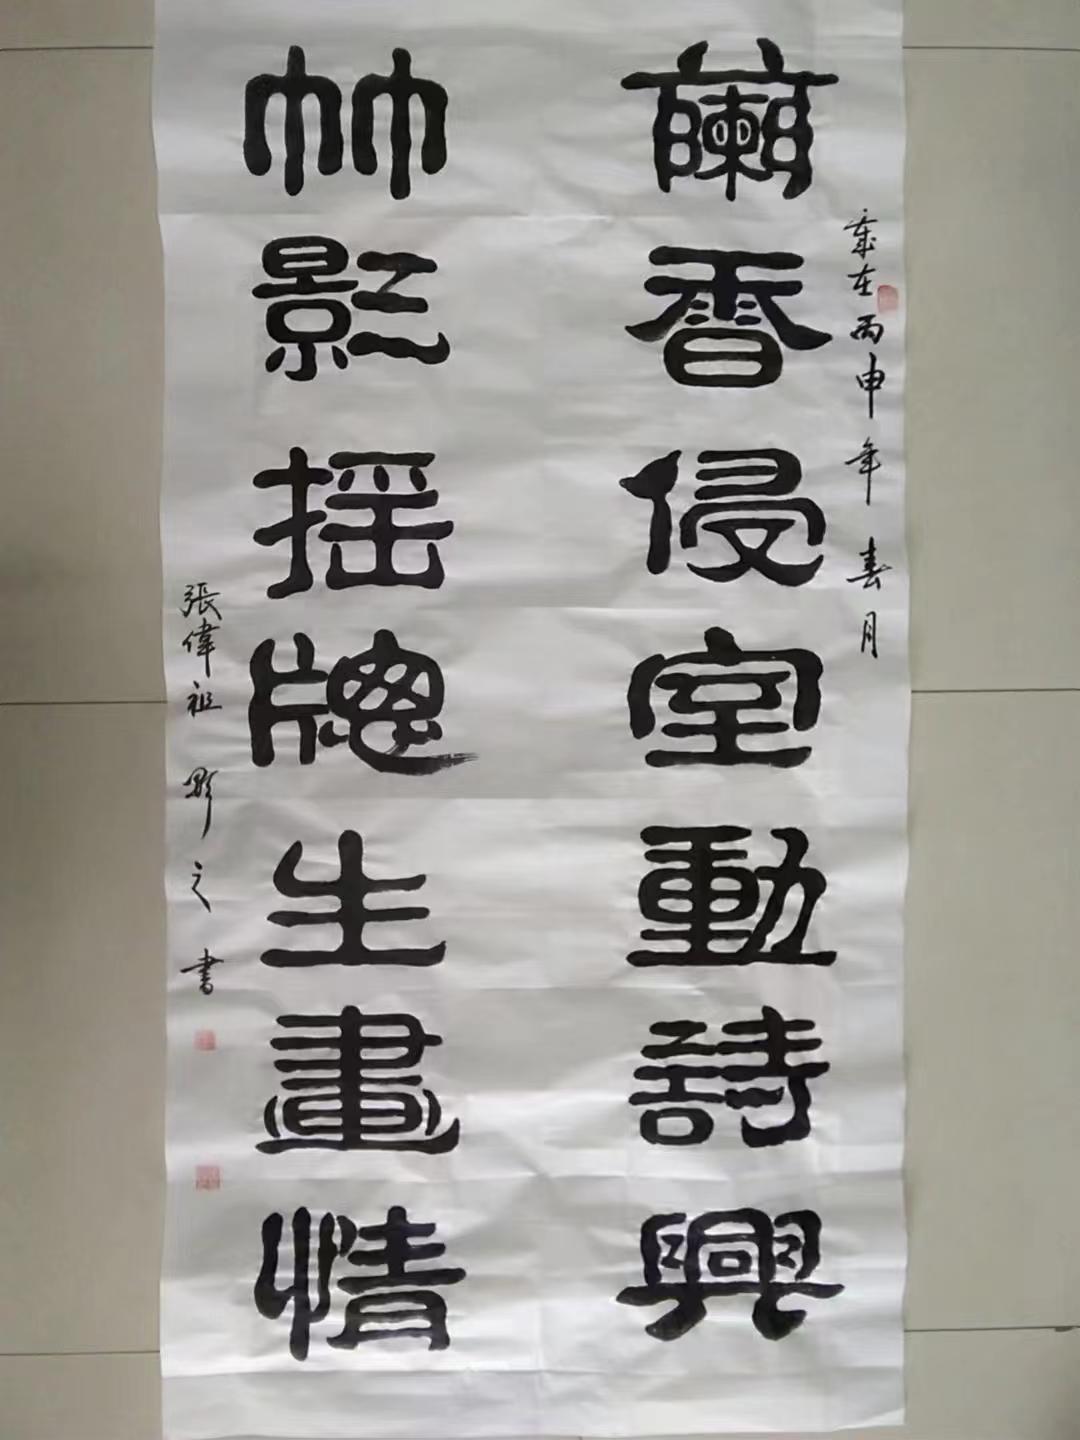 歲在丙申年春月
蘭香侵室動詩興
竹影摇牕生畫情
張偉祖 之書